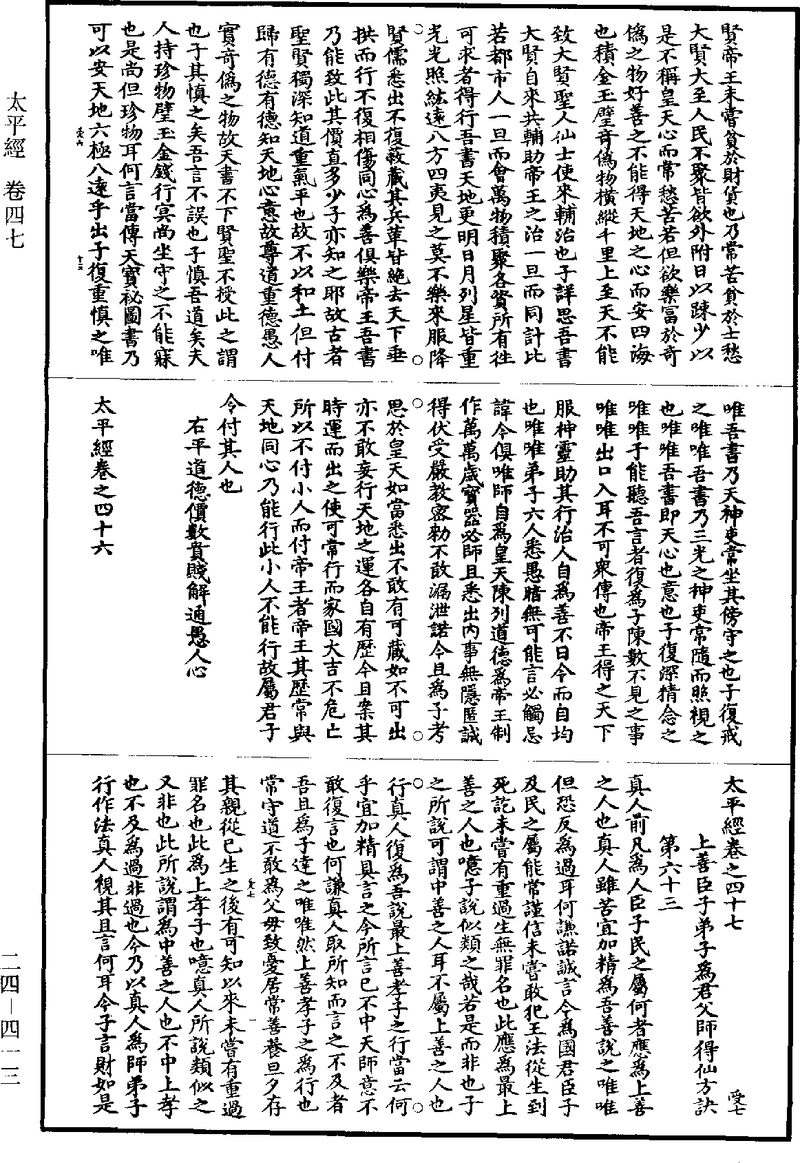 賢帝王未嘗貧於財貨也乃常苦貧於士愁
大賢大至人民不聚皆欲外附日以疎少以
是不稱皇天心而常愁苦若但欲樂富於奇
偽之物好善之不能得天地之心而安四海
也積金玉璧奇偽物橫縱千里上至天不能
致大賢聖人仙士使來輔治也子詳思吾書
大賢自來共輔助帝王之治一旦而同計比
若都市人一旦而會萬物積聚各資所有往
可求者得行吾書天地更明日月列星皆重
光光照紘遠八方四夷見之莫不樂來服降
賢儒悉出不復蔽藏其兵革皆絕去天下垂
拱而行不復相傷同心為善俱樂帝王吾書
乃能致此其價直多少子亦知之耶故古者
聖賢獨深知道重氣平也故不以和土但付
歸有德有德知天地心意故尊道重德愚人
實奇偽之物故天書不下賢聖不授此之謂
也子其慎之矣吾言不誤也子慎吾道矣夫
人持珍物璧玉金錢行冥尚坐守之不能寐
也是尚但珍物耳何言當傳天寶祕圖書乃
可以安天地六極八遠乎出子復重慎之唯
受六
十二
太平經 卷四七
唯吾書乃天神吏常坐其傍守之也子復戒
之唯唯吾書乃三光之神吏常隨而照視之
也唯唯吾書即天心也意也子復深精念之
唯唯子能聽吾言者復為子陳數不見之事
唯唯出口入耳不可衆傳也帝王得之天下
服神靈助其行治人自為善不日令而自均
也唯唯弟子六人悉愚暗無可能言必觸忌
諱今俱唯師自為皇天陳列道德為帝王制
作萬萬歲寶器必師且悉出內事無隱匿誠
得伏受嚴教密勑不敢漏泄諾今且為子考
思於皇天如當悉出不敢有可藏如不可出
亦不敢妄行天地之運各自有歷今且案其
時運而出之使可常行而家國大吉不危亡
所以不付小人而付帝王者帝王其歷常與
天地同心乃能行此小人不能行故屬君子
令付其人也
右平道德價數貴賤解通愚人心
太平經卷之四十六
太平經卷之四十七
受七
上善臣子弟子為君父師得仙方訣
第六十三
真人前凡為人臣子民之屬何者應為上善
之人也真人雖苦宜加精為吾善說之唯唯
但恐反為過耳何謙諾誠言今為國君臣子
及民之屬能常謹信未嘗敢犯王法從生到
死訖未嘗有重過生無罪名也此應為最上
善之人也噫子說似類之哉若是而非也子
之所說可謂中善之人耳不屬上善之人也
行真人復為吾說最上善孝子之行當云何
乎宜加精具言之今所言已不中天師意不
敢復言也何謙真人取所知而言之不及者
吾且為子達之唯唯然上善孝子之為行也
常守道不敢為父母致憂居常善養旦夕存
受七
一
其親從已生之後有可知以來未嘗有重過
罪名也此為上孝子也噫真人所說類似之
又非也此所說謂為中善之人也不中上孝
也不及為過非過也今乃以真人為師弟子
行作法真人視其且言何耳今子言財如是
二四—四一三